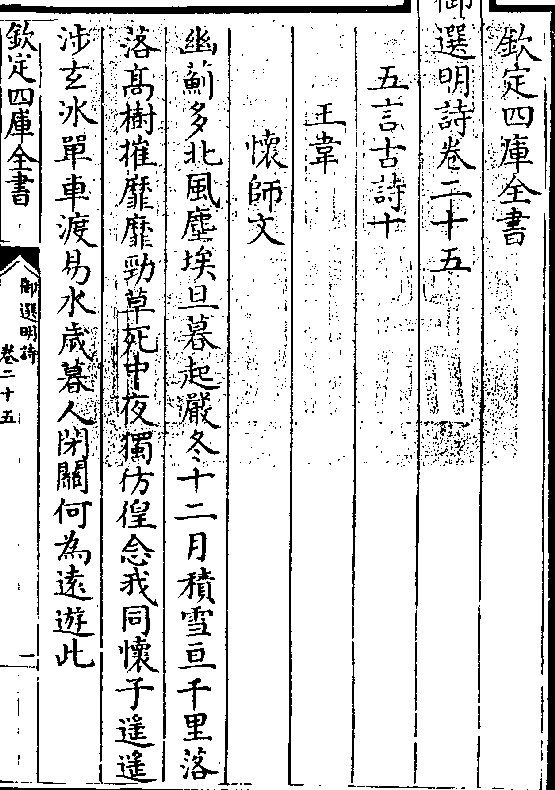 欽定四庫全書
御選明詩卷二十五
五言古詩十
王韋
懷師文
幽薊多北風塵埃旦暮起嚴冬十二月積雪亘千里落
落高樹摧靡靡勁草死中夜獨仿徨念我同懷子遥遥
涉玄冰單車渡易水歲暮人閉關何為逺遊此
欽定四庫全書
御選明詩
卷二十五
一